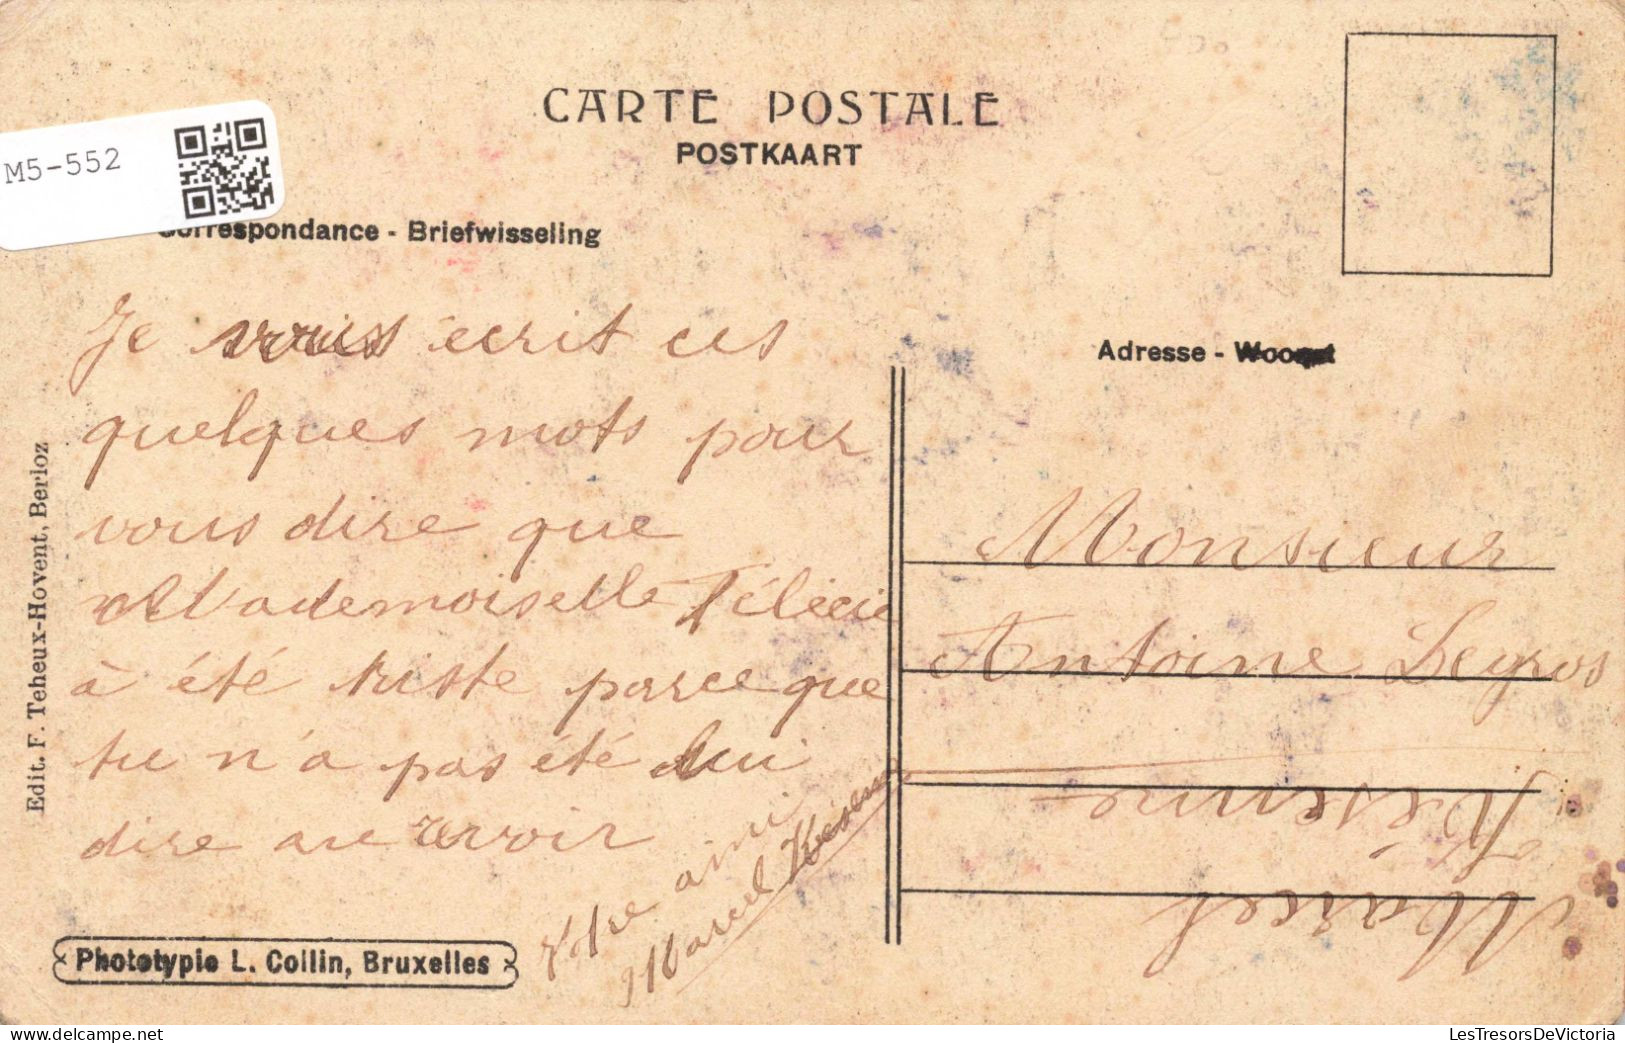 CARTE POSTALE
POSTKAART
M5-552
Correspondance - Briefwisseling
Je vous écrit ces
quelques mots pour
vous dire que
Mademoiselle Félécie
à été triste parce que
tu n'a pas été lui
dire au revoir
Votre ami
Marcel
Adresse -
Monsieur
Antoine Legros
Marcel
Edit. F. Teheux-Hovent, Berloz
Phototypie L. Collin, Bruxelles
LesTresorsDeVictoria